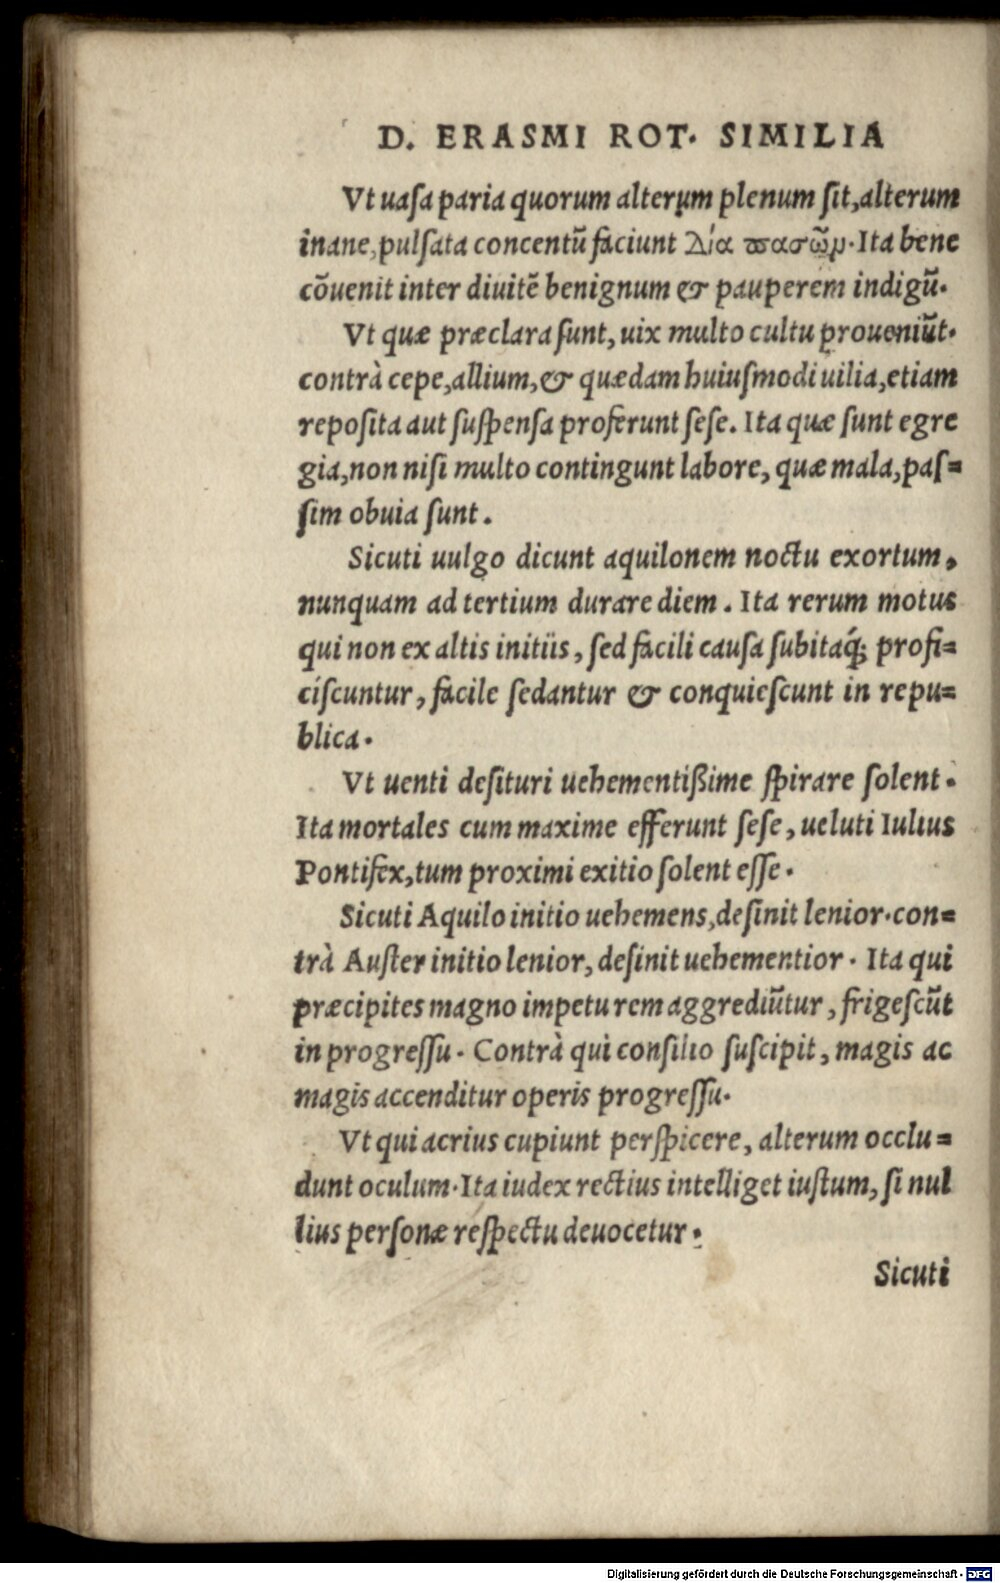 D. ERASMI ROT. SIMILIA
Vt uasa paria quorum alterum plenum sit, alterum
inane, pulsata concentũ faciunt Δία πασῶν. Ita bene
cõuenit inter diuitẽ benignum & pauperem indigũ.
Vt quæ præclara sunt, uix multo cultu proueniũt.
contrà cepe, allium, & quædam huiusmodi uilia, etiam
reposita aut suspensa proferunt sese. Ita quæ sunt egre
gia, non nisi multo contingunt labore, quæ mala, pas=
sim obuia sunt.
Sicuti uulgo dicunt aquilonem noctu exortum,
nunquam ad tertium durare diem. Ita rerum motus
qui non ex altis initijs, sed facili causa subitaq́; profi=
ciscuntur, facile sedantur & conquiescunt in repu=
blica.
Vt uenti desituri uehementißime spirare solent.
Ita mortales cum maxime efferunt sese, ueluti Iulius
Pontifex, tum proximi exitio solent esse.
Sicuti Aquilo initio uehemens, desinit lenior. con=
trà Auster initio lenior, desinit uehementior. Ita qui
præcipites magno impetu rem aggrediũtur, frigescũt
in progressu. Contrà qui consilio suscipit, magis ac
magis accenditur operis progressu.
Vt qui acrius cupiunt perspicere, alterum occlu=
dunt oculum. Ita iudex rectius intelliget iustum, si nul
lius personæ respectu deuocetur.
Sicuti
Digitalisierung gefördert durch die Deutsche Forschungsgemeinschaft - DFG